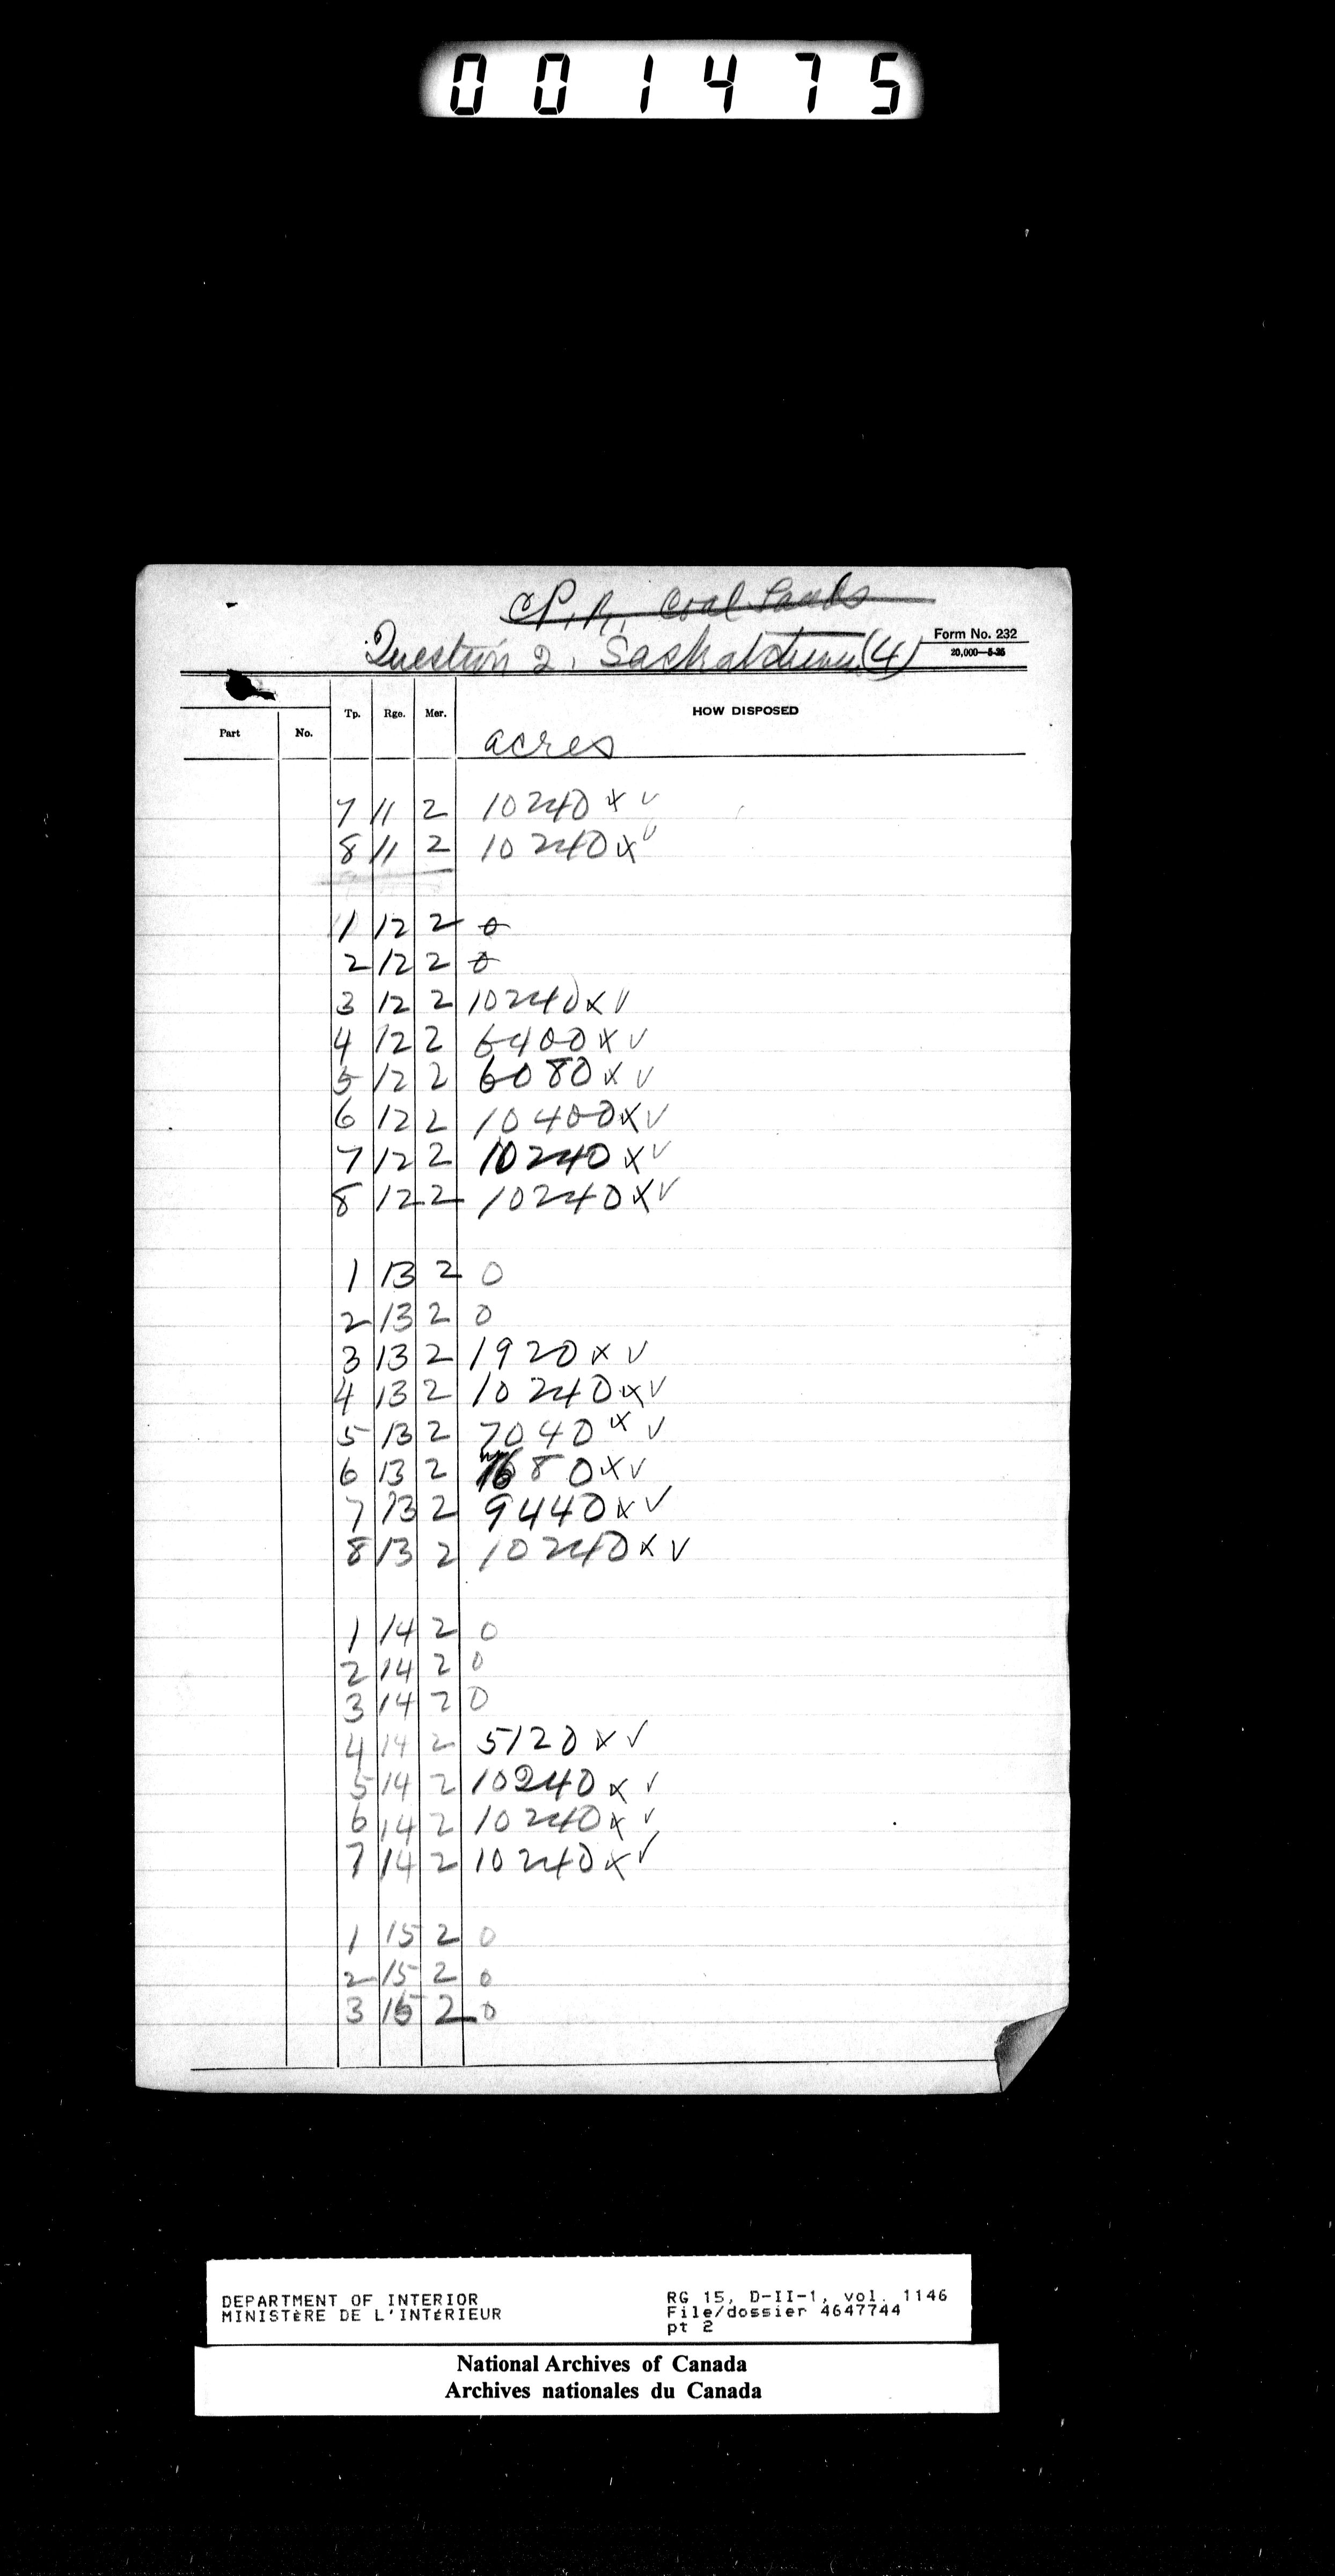 001475
C.P.R. Coal Lands
Question 2, Saskatchewan (4)
Form No. 232
20,000—5-25
Part No. Tp. Rge. Mer. HOW DISPOSED
acres
7 11 2 10240 x ✓
8 11 2 10240 x ✓
1 12 2 0
2 12 2 0
3 12 2 10240 x ✓
4 12 2 6400 x ✓
5 12 2 6080 x ✓
6 12 2 10400 x ✓
7 12 2 10240 x ✓
8 12 2 10240 x ✓
1 13 2 0
2 13 2 0
3 13 2 1920 x ✓
4 13 2 10240 x ✓
5 13 2 7040 x ✓
6 13 2 7680 x ✓
7 13 2 9440 x ✓
8 13 2 10240 x ✓
1 14 2 0
2 14 2 0
3 14 2 0
4 14 2 5120 x ✓
5 14 2 10240 x ✓
6 14 2 10240 x ✓
7 14 2 10240 x ✓
1 15 2 0
2 15 2 0
3 15 2 0
DEPARTMENT OF INTERIOR
MINISTÈRE DE L'INTÉRIEUR
RG 15, D-II-1, vol. 1146
File/dossier 4647744
pt 2
National Archives of Canada
Archives nationales du Canada